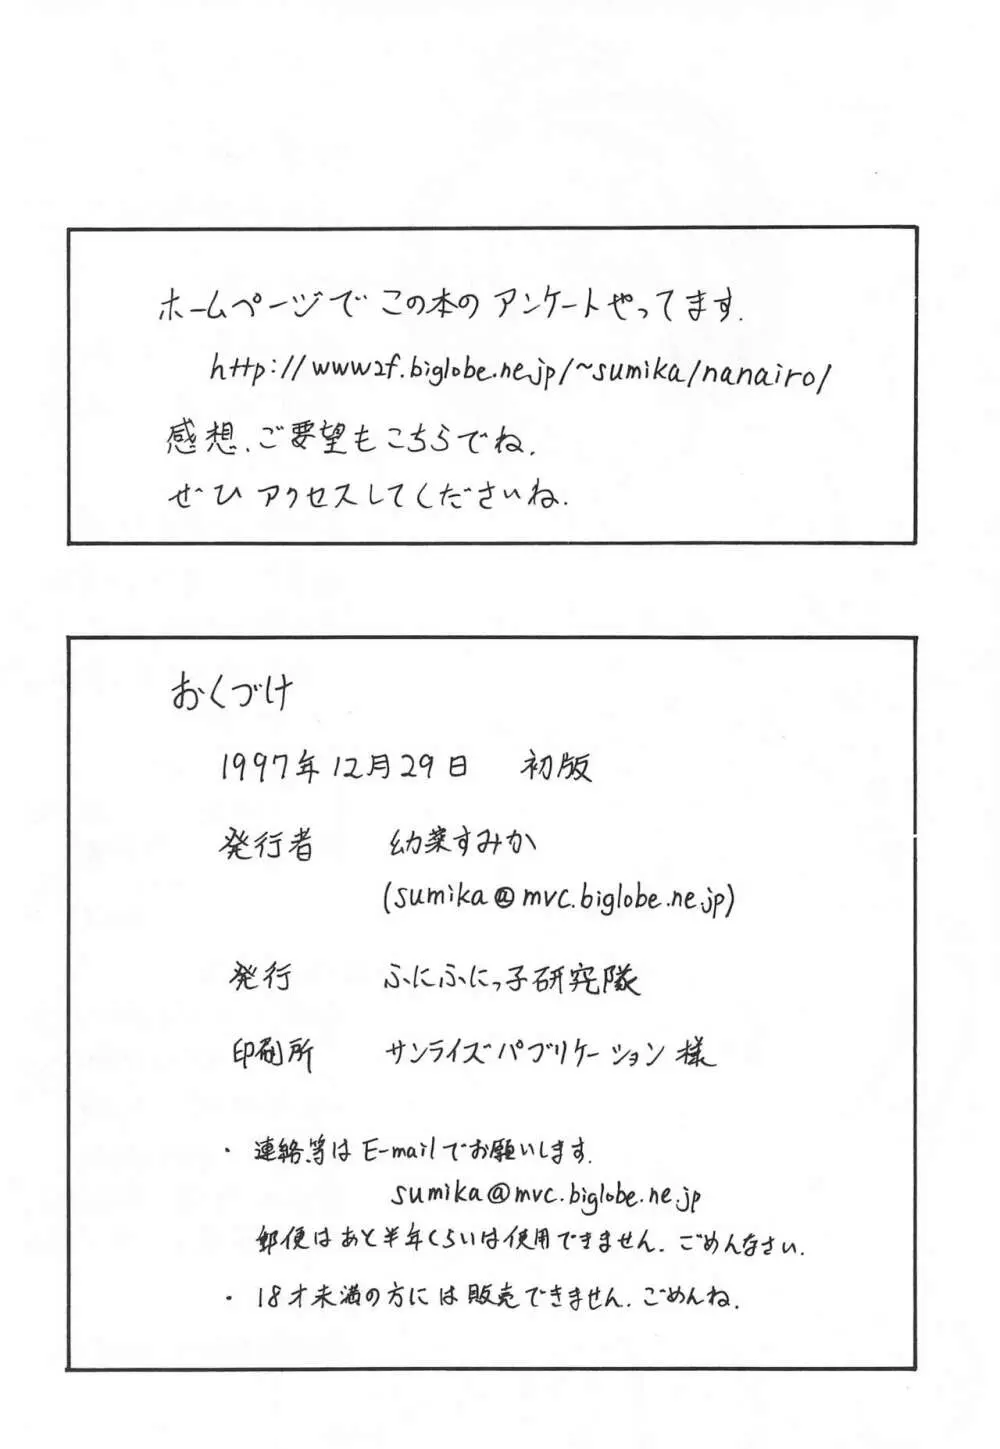 ホームページで この本の アンケートやってます.
http://www2f.biglobe.ne.jp/~sumika/nanairo/
感想、ご要望もこちらでね.
ぜひ アクセスしてくださいね.
おくづけ
1997年12月29日 初版
発行者 幼菜すみか
(sumika@mvc.biglobe.ne.jp)
発行 ふにふにっ子研究隊
印刷所 サンライズパブリケーション様
・ 連絡等は E-mailでお願いします.
sumika@mvc.biglobe.ne.jp
郵便はあと半年くらいは使用できません. ごめんなさい.
・ 18才未満の方には販売できません. ごめんね.